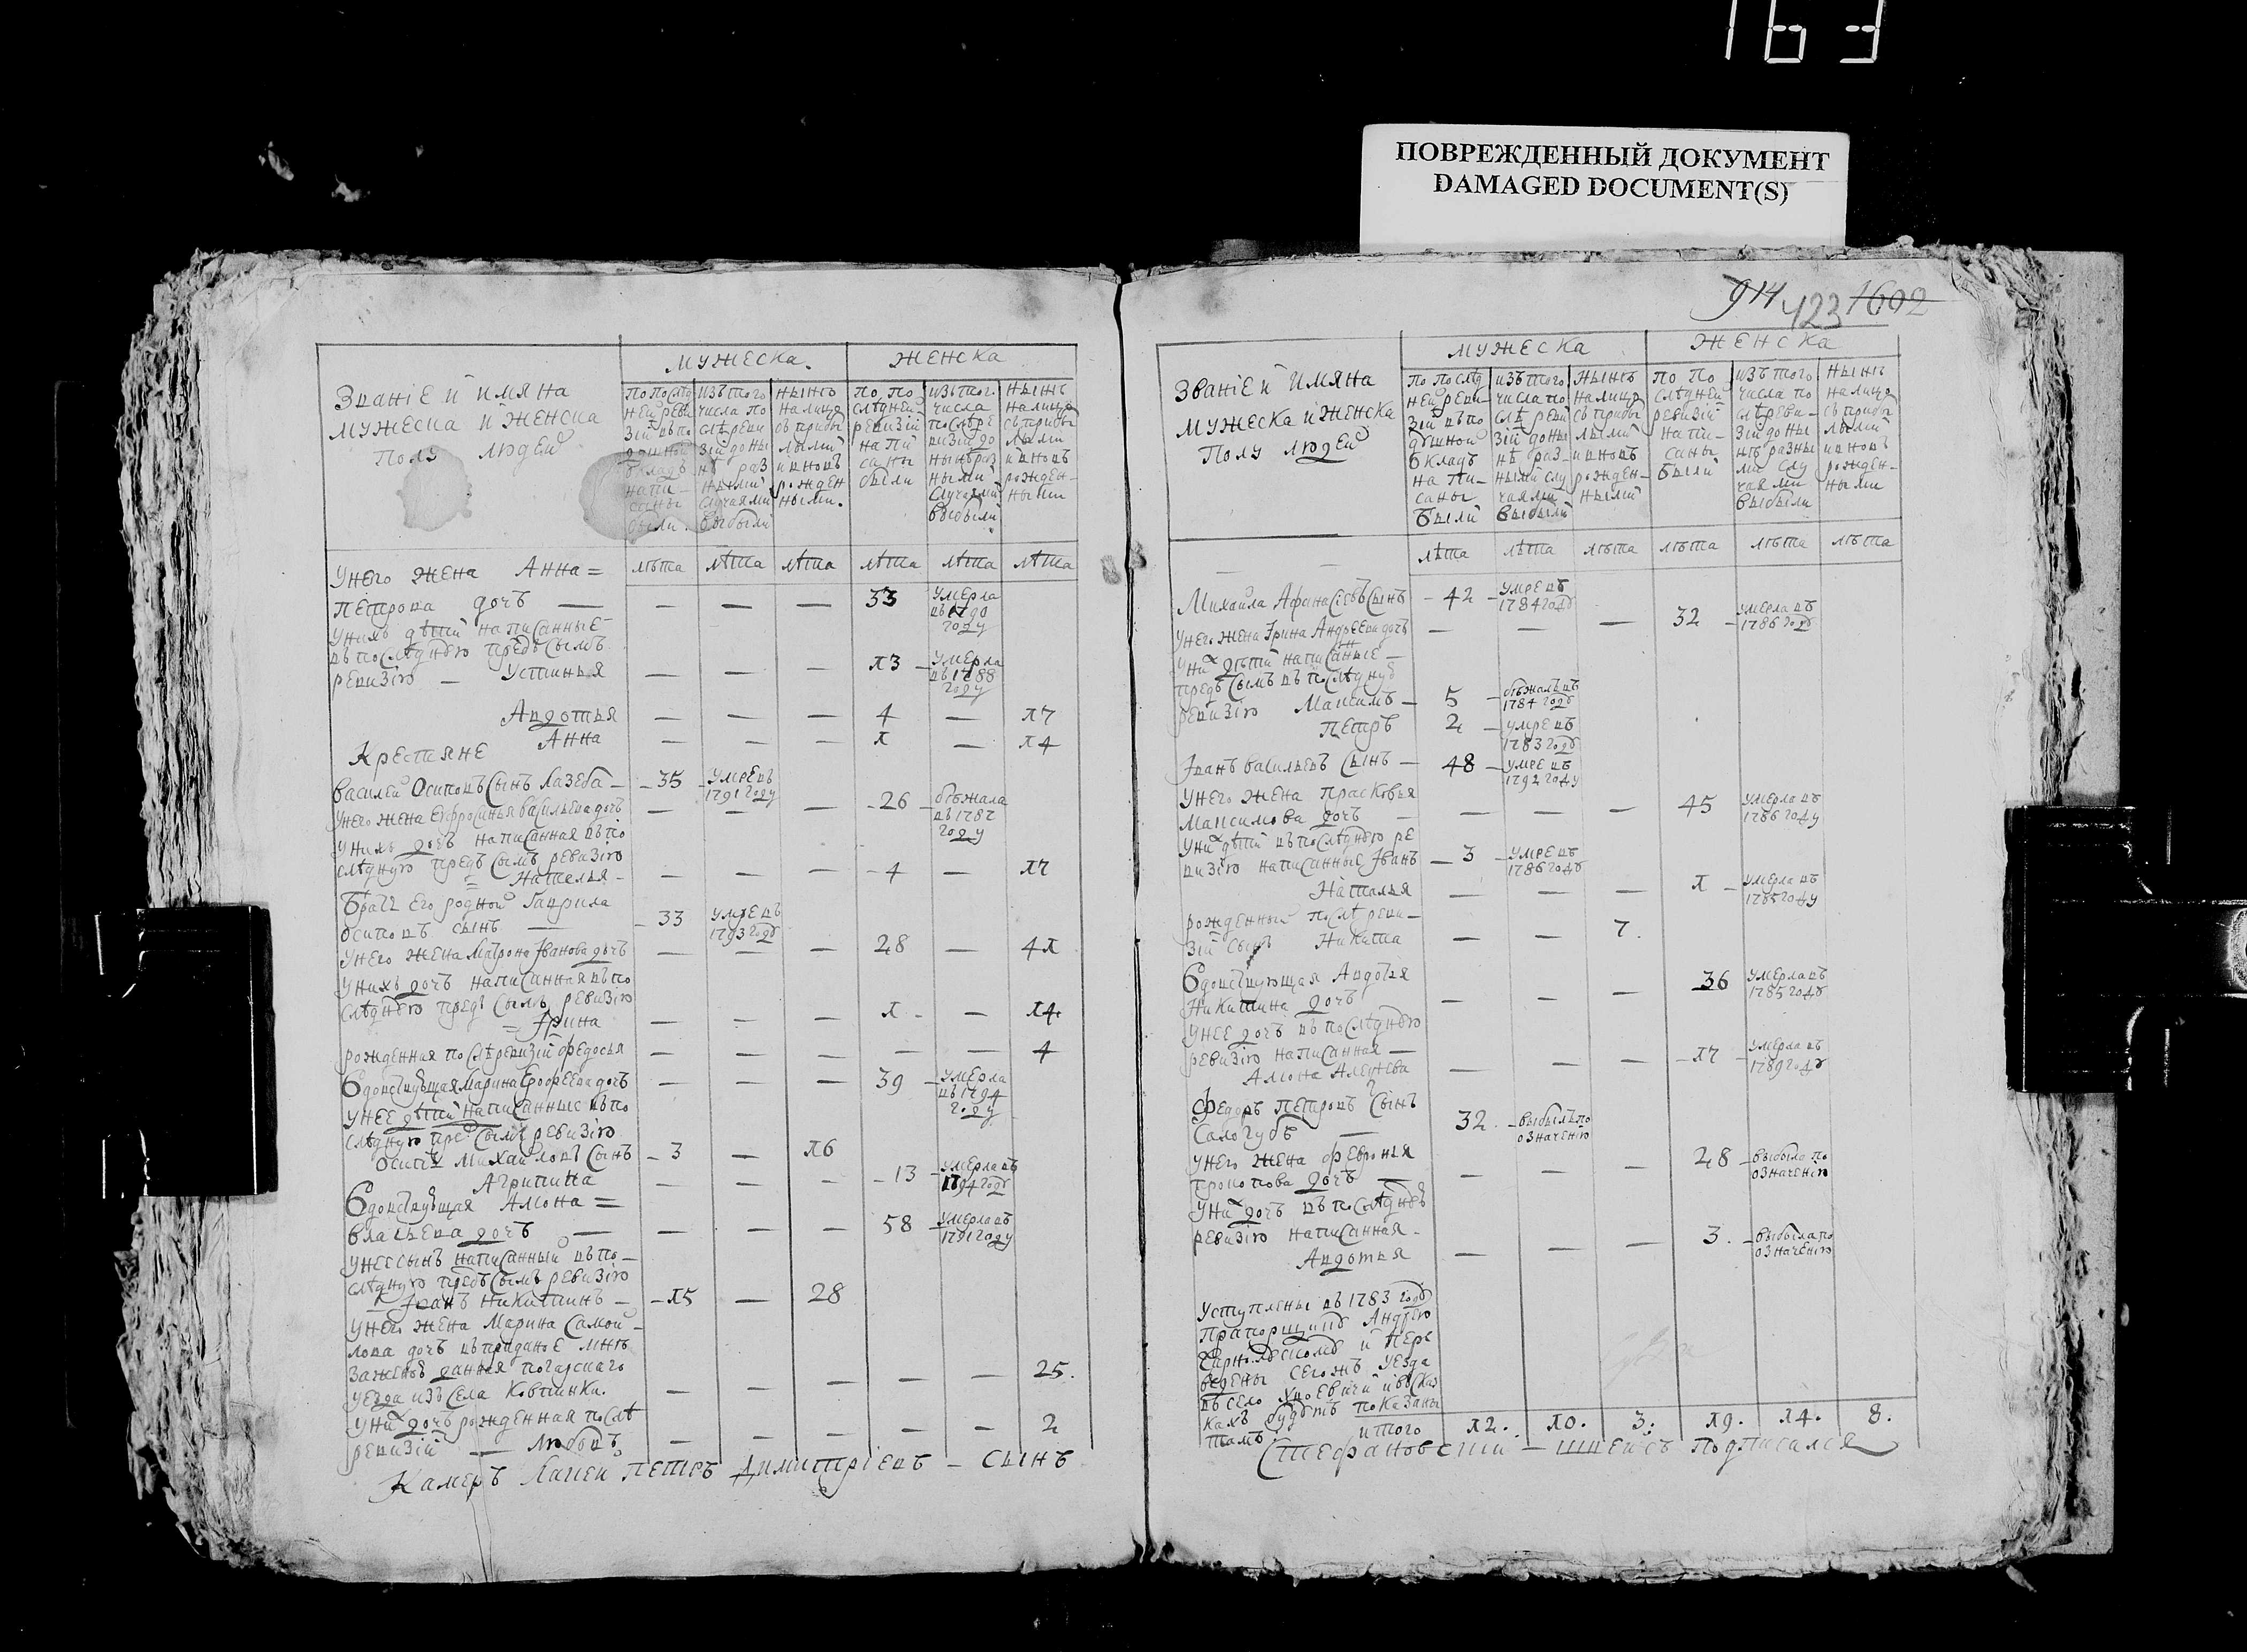 163
ПОВРЕЖДЕННЫЙ ДОКУМЕНТ
DAMAGED DOCUMENT(S)
МУЖЕСКА.
ЖЕНСКА
Званіе и имяна
мужеска и женска
полу людей
По послѣд
ней реви
зіи въ по
душной
окладъ
напи-
саны
были.
изъ того
числа по
слѣ реви
зіи до ны
нѣ раз
ными
случаями
выбыли
нынѣ
налицо
съ прибы
лыми
и вновь
рожден
ными.
по по
слѣдней
ревизіи
напи
саны
были
изъ того
числа
послѣ ре
визіи до
нынѣ раз
ными
случаями
выбыли
нынѣ
налицо
съ прибы
лыми
и вновь
рожден-
ными
лѣта лѣта лѣта лѣта лѣта лѣта
У него жена Анна =
Петрова дочь — — — — 33 умерла въ 1790 году
У нихъ дѣти написанные
въ послѣднюю предъ сымъ
ревизію — Устинья — — — 13 — умерла въ 1788 году
Авдотья — — — 4 — 17
Анна — — — 1 — 14
Крестяне
Василей Осиповъ сынъ Лазеба — 35 — умре въ 1791 году
У него жена Ефросинья Васильева дочь — — — 26 — бѣжала въ 1787 году
У нихъ дочь написанная въ по
слѣдную предъ сымъ ревизію
= Наталья — — — — 4 — 17
Братъ его родной Гаврила
Осиповъ сынъ — 33 умре въ 1793 году
У него жена Матрона Іванова дочь — — — 28 — 41
У нихъ дочь написанная въ по
слѣднюю предъ сымъ ревизію
= Ірина — — — 1 — 14.
рожденная послѣ ревизіи Федосья — — — — — 4
Вдовствующая Марина Ерофеева дочь — — — 39 — умерла въ 1794 году
У нее дѣти написанные въ по
слѣдную предъ сымъ ревизію
Осипъ Михайловъ сынъ — 3 — 16
Агрипина — — — 13 — умерла въ 1794 году
Вдовствующая Алюна =
Власьева дочь — — — — 58 — умерла въ 1791 году
У нее сынъ написанный въ по-
слѣднуто предъ сымъ ревизію
Іванъ Никитинъ — 15 — 28
У него жена Марина Самой-
лова дочь въ приданое мнѣ
за женою данная Погарскаго
уезда изъ села Ковтинки. — — — — — 25.
У них дочь рожденная послѣ
ревизіи — Любовъ — — — — — 2
Камеръ Лакей Петръ Димитріевъ — сынъ
914 423 1602
МУЖЕСКА
ЖЕНСКА
Званіе и имяна
мужеска и женска
полу людей
По послѣд
ней реви-
зіи въ по
душной
окладъ
напи-
саны
были
изъ того
числа по
слѣ реви
зіи до ны
нѣ раз-
ными слу
чаями
выбыли
Нынѣ
налицо
съ прибы
лыми
и вновь
рожден-
ными
По по
слѣдней
ревизіи
напи-
саны
были
изъ того
числа по
слѣ реви-
зіи до ны
нѣ разны
ми слу
чаями
выбыли
Нынѣ
налицо
съ прибы
лыми
и вновь
рожден-
ными
лѣта лѣта лѣта лѣта лѣта лѣта
Михайла Афанасіевъ сынъ — 42 — умре въ 1784 году
У него жена Ірина Андреева дочь — — — 32 — умерла въ 1786 году
У них дѣти написаные —
предъ сымъ въ послѣдную
ревизію Максимъ — 5 — бѣжалъ въ 1784 году
Петръ 2 — умре въ 1783 году
Іванъ Васильевъ сынъ — 48 — умре въ 1792 году
У него жена Прасковья
Максимова дочь — — — — 45 умерла въ 1786 году
У них дѣти въ послѣднюю ре
визію написанные Іванъ — 3 — умре въ 1786 году
Наталья — — — 1 — умерла въ 1785 году
рожденный послѣ реви-
зіи сынъ Никита — — 7.
Вдовствующая Авдотья
Никитина дочь — — — 36 умерла въ 1785 году
У нее дочь въ послѣднюю
ревизію написанная —
Алюна Алеѯева — — — 17 — умерла въ 1789 году
Федоръ Петровъ сынъ
Салогубъ — 32. — выбылъ по означенію
У него жена Февронья
Прокопова дочь — — — — 28 — выбыла по означенію
У них дочь въ послѣднюю
ревизію написанная —
Авдотья — — — 3. — выбыла по означенію
Уступлены въ 1783 году
Прапорщику Андрею
и пере
ведены сегожъ уезда
въ село и въ сказ
кахъ будутъ показаны
тамъ. итого 12. 10. 3. 19. 14. 8.
Стефановскій — подписался